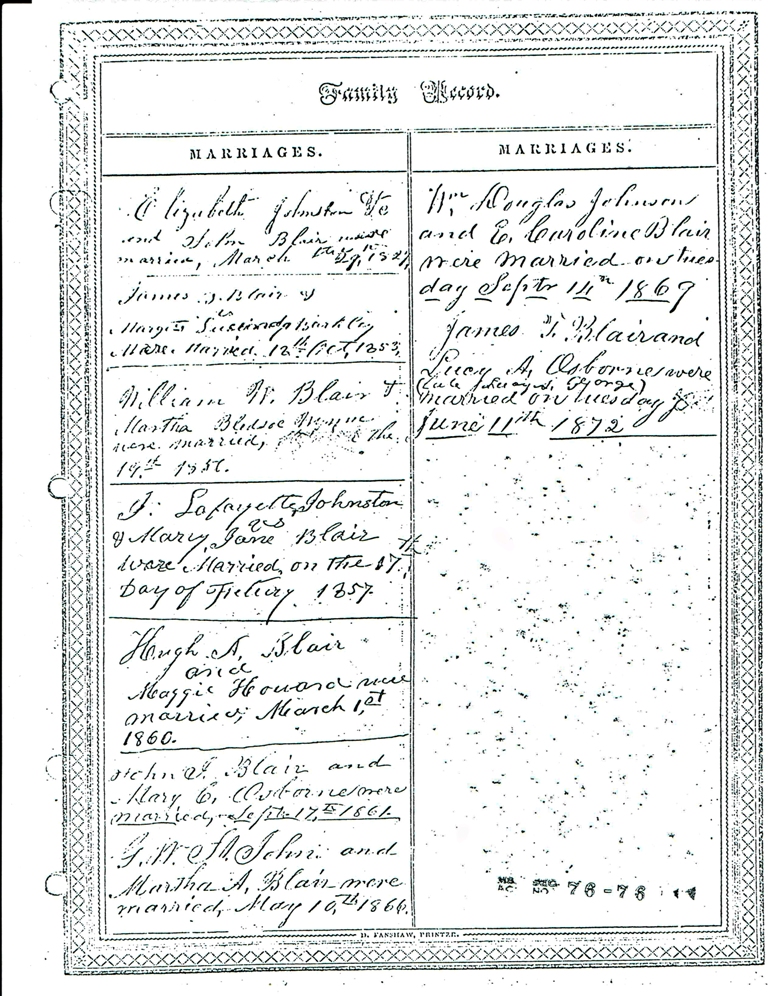 Family Record.
MARRIAGES.
Elizabeth Johnston
and John Blair were
married, March 29th, 1827,
James Blair &
Margt Lucinda Barkley
Were Married, 12th Oct, 1853,
William W. Blair &
Martha Bledsoe
were married, the
19th
J. Lafayette Johnston
& Mary Jane Blair
Ware Married, on the 17th
Day of 1857
Hugh A. Blair
and
Maggie Howard were
married, March 1st
1860.
John J. Blair and
Mary E. Osborne were
married, Sept. 17th 1861.
G. W. St. John and
Martha A. Blair were
married, May 10,th 1866.
MARRIAGES.
Wm Douglas Johnson
and E. Caroline Blair
were married on tues
day Septr 14th 1869
James F. Blair and
Lucy A. Osborne were
George)
married on tuesday
June 11th 1872
76-76
D. FANSHAW, PRINTER.